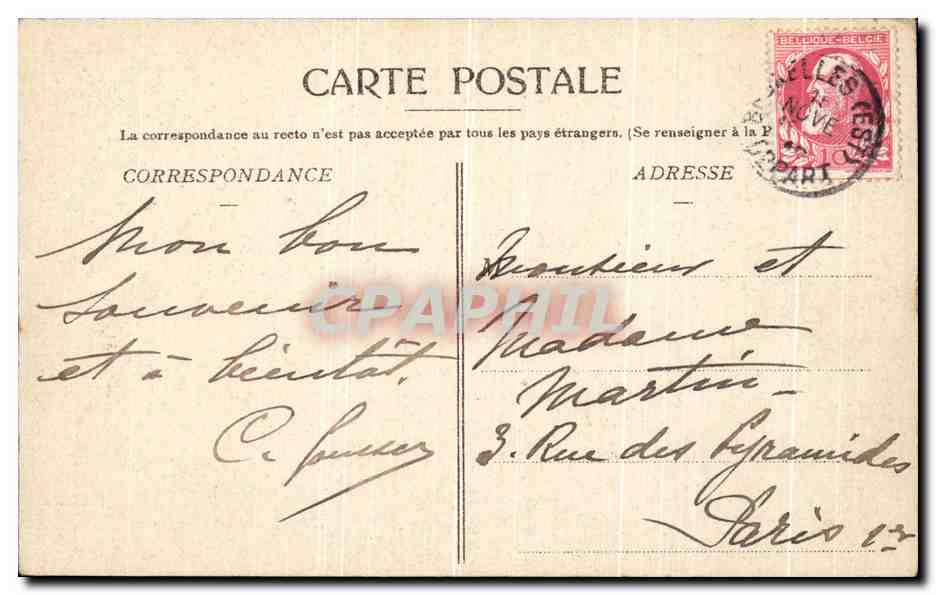 CARTE POSTALE
La correspondance au recto n'est pas acceptée par tous les pays étrangers. (Se renseigner à la P
CORRESPONDANCE
ADRESSE
BELGIQUE-BELGIE
10
BRUXELLES (EST)
NOVE
DEPART
Mon bon
souvenir
et à bientôt.
C.
Monsieur et
Madame
Martin
3. Rue des Pyramides
Paris 1er
CPAPHIL